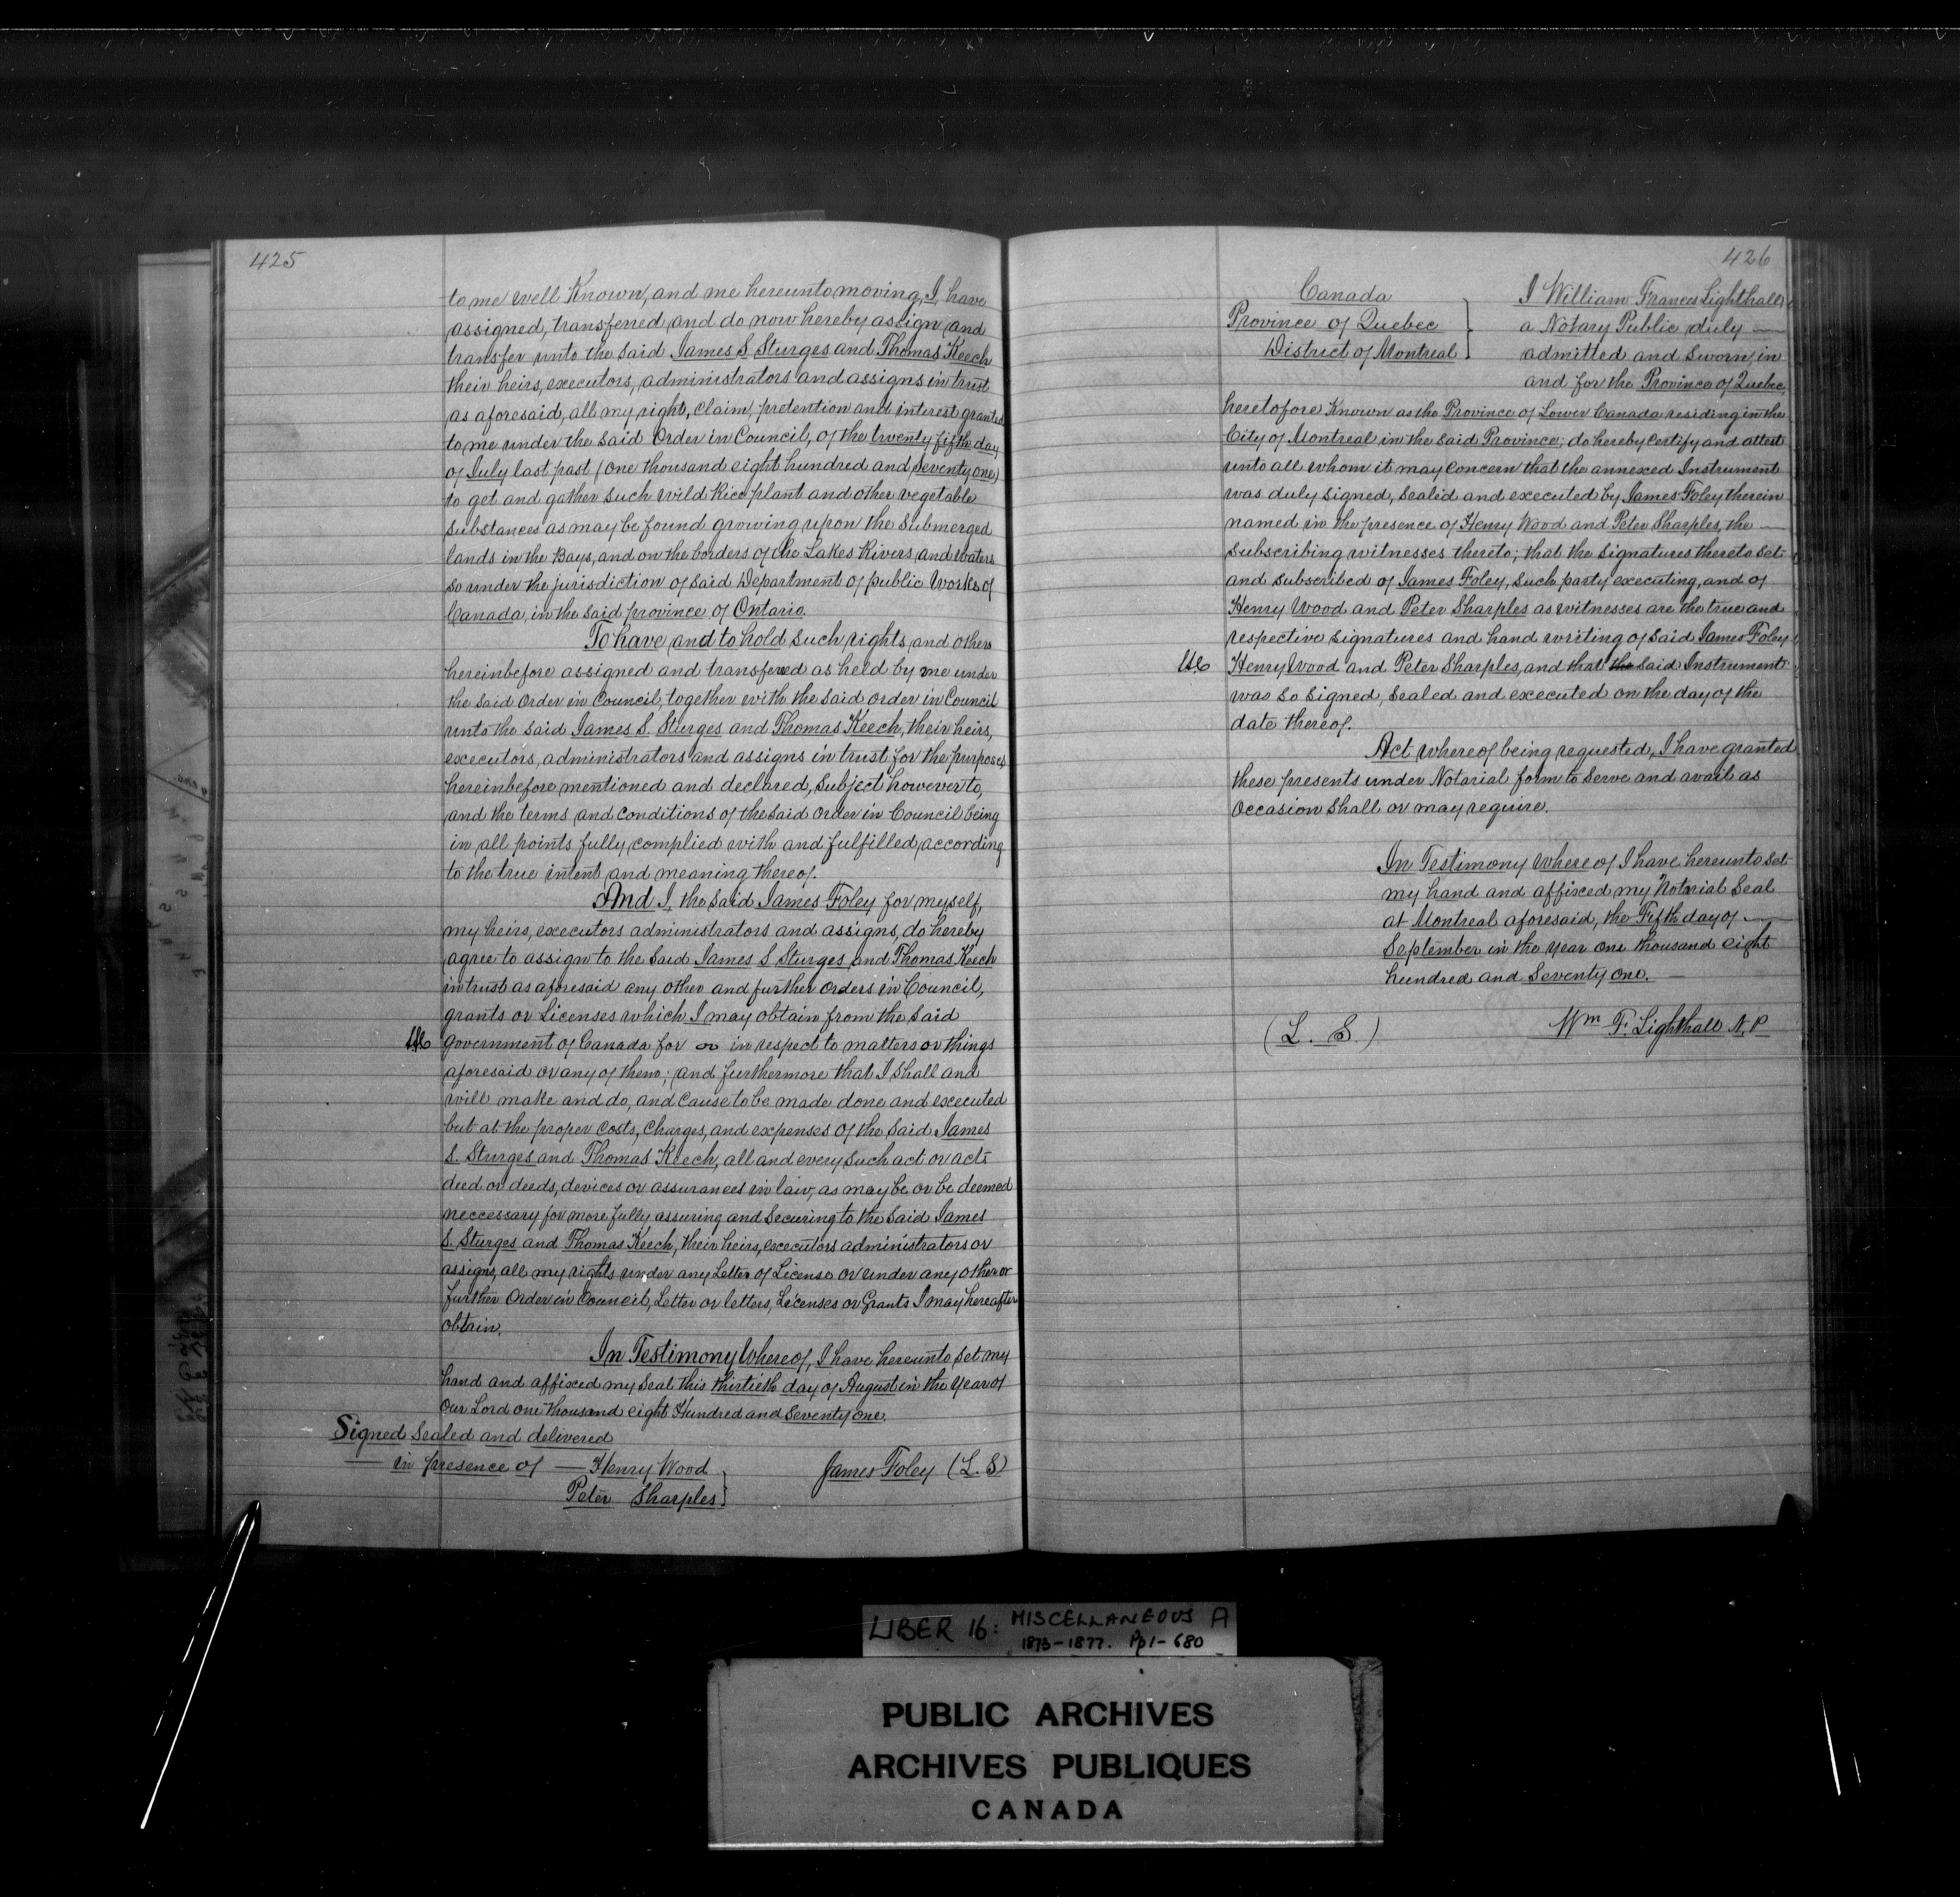 425
to me well Known, and me hereunto moving, I, have
assigned, transferred and do now hereby assign and
transfer unto the said James S Sturges and Thomas Keech
their heirs, executors, administrators and assigns in trust
as aforesaid, all my right, claim, pretention and interest granted
to me under the said Order in Council, of the twenty fifth day
of July last past (one thousand eight hundred and seventy one)
to get and gather such wild Rice plant and other vegetable
substances as may be found growing upon the submerged
lands in the Bays, and on the borders of the Lakes Rivers and Waters
so under the jurisdiction of said Department of public Works of
Canada, in the said province of Ontario.
To have and to hold such rights, and others
hereinbefore assigned and transfered as held by me under
the said Order in Council, together with the said order in Council
unto the said James S. Sturges and Thomas Keech, their heirs,
executors, administrators and assigns in trust for the purposes
hereinbefore mentioned and declared, subject however to,
and the terms and conditions of the said order in Council being
in all points fully complied with and fulfilled, according
to the true intent and meaning thereof.
And I, the said James Foley for myself,
my heirs, executors administrators and assigns, do hereby
agree to assign to the said James S Sturges and Thomas Keech
in trust as aforesaid any other and further orders in Council,
grants or Licenses which I may obtain from the said
government of Canada for or in respect to matters or things
aforesaid or any of them; and furthermore that I shall and
will make and do, and cause to be made done and executed
but at the proper costs, charges, and expenses of the said James
S. Sturges and Thomas Keech, all and every such act or acts
deed or deeds, devices or assurances in law, as may be or be deemed
neccessary for more fully assuring and securing to the said James
S. Sturges and Thomas Keech, their heirs, executors administrators or
assigns, all my rights under any Letter of License or under any other or
further Order in Council, Letter or letters, Licenses or Grants I may hereafter
obtain.
In Testimony Whereof, I have hereunto set my
hand and affixed my seal this thirtieth day of August in the Year of
Our Lord one thousand eight Hundred and seventy one.
Signed Sealed and delivered
in presence of — Henry Wood
Peter Sharples
James Foley (L. S)
426
Canada
Province of Quebec
District of Montreal
I William Frances Lighthall,
a Notary Public duly
admitted and sworn, in
and for the Province of Quebec,
heretofore Known as the Province of Lower Canada residing in the
City of Montreal in the said Province; do hereby certify and attest
unto all whom it may concern that the annexed Instrument
was duly signed, sealed and executed by James Foley therein
named in the presence of Henry Wood and Peter Sharples, the
subscribing witnesses thereto; that the signatures thereto set
and subscribed of James Foley, such party executing, and of
Henry Wood and Peter Sharples as witnesses are the true and
respective signatures and hand writing of said James Foley
Henry Wood and Peter Sharples, and that the said Instrument
was so signed, sealed and executed on the day of the
date thereof.
Act whereof being requested, I have granted
these presents under Notarial form to serve and avail as
Occasion shall or may require.
In Testimony Whereof I have hereunto set
my hand and affixed my Notarial Seal
at Montreal aforesaid, the Fifth day of
September in the year one thousand eight
hundred and seventy one.
(L. S.)
Wm F. Lighthall N. P
LIBER 16: MISCELLANEOUS A
1873-1877. Pp 1-680
PUBLIC ARCHIVES
ARCHIVES PUBLIQUES
CANADA